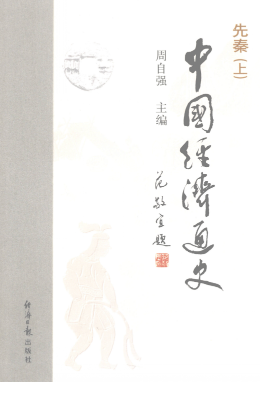 先秦(上)
中國經濟通史
周自强 主编
范敬宜題
经济日报出版社